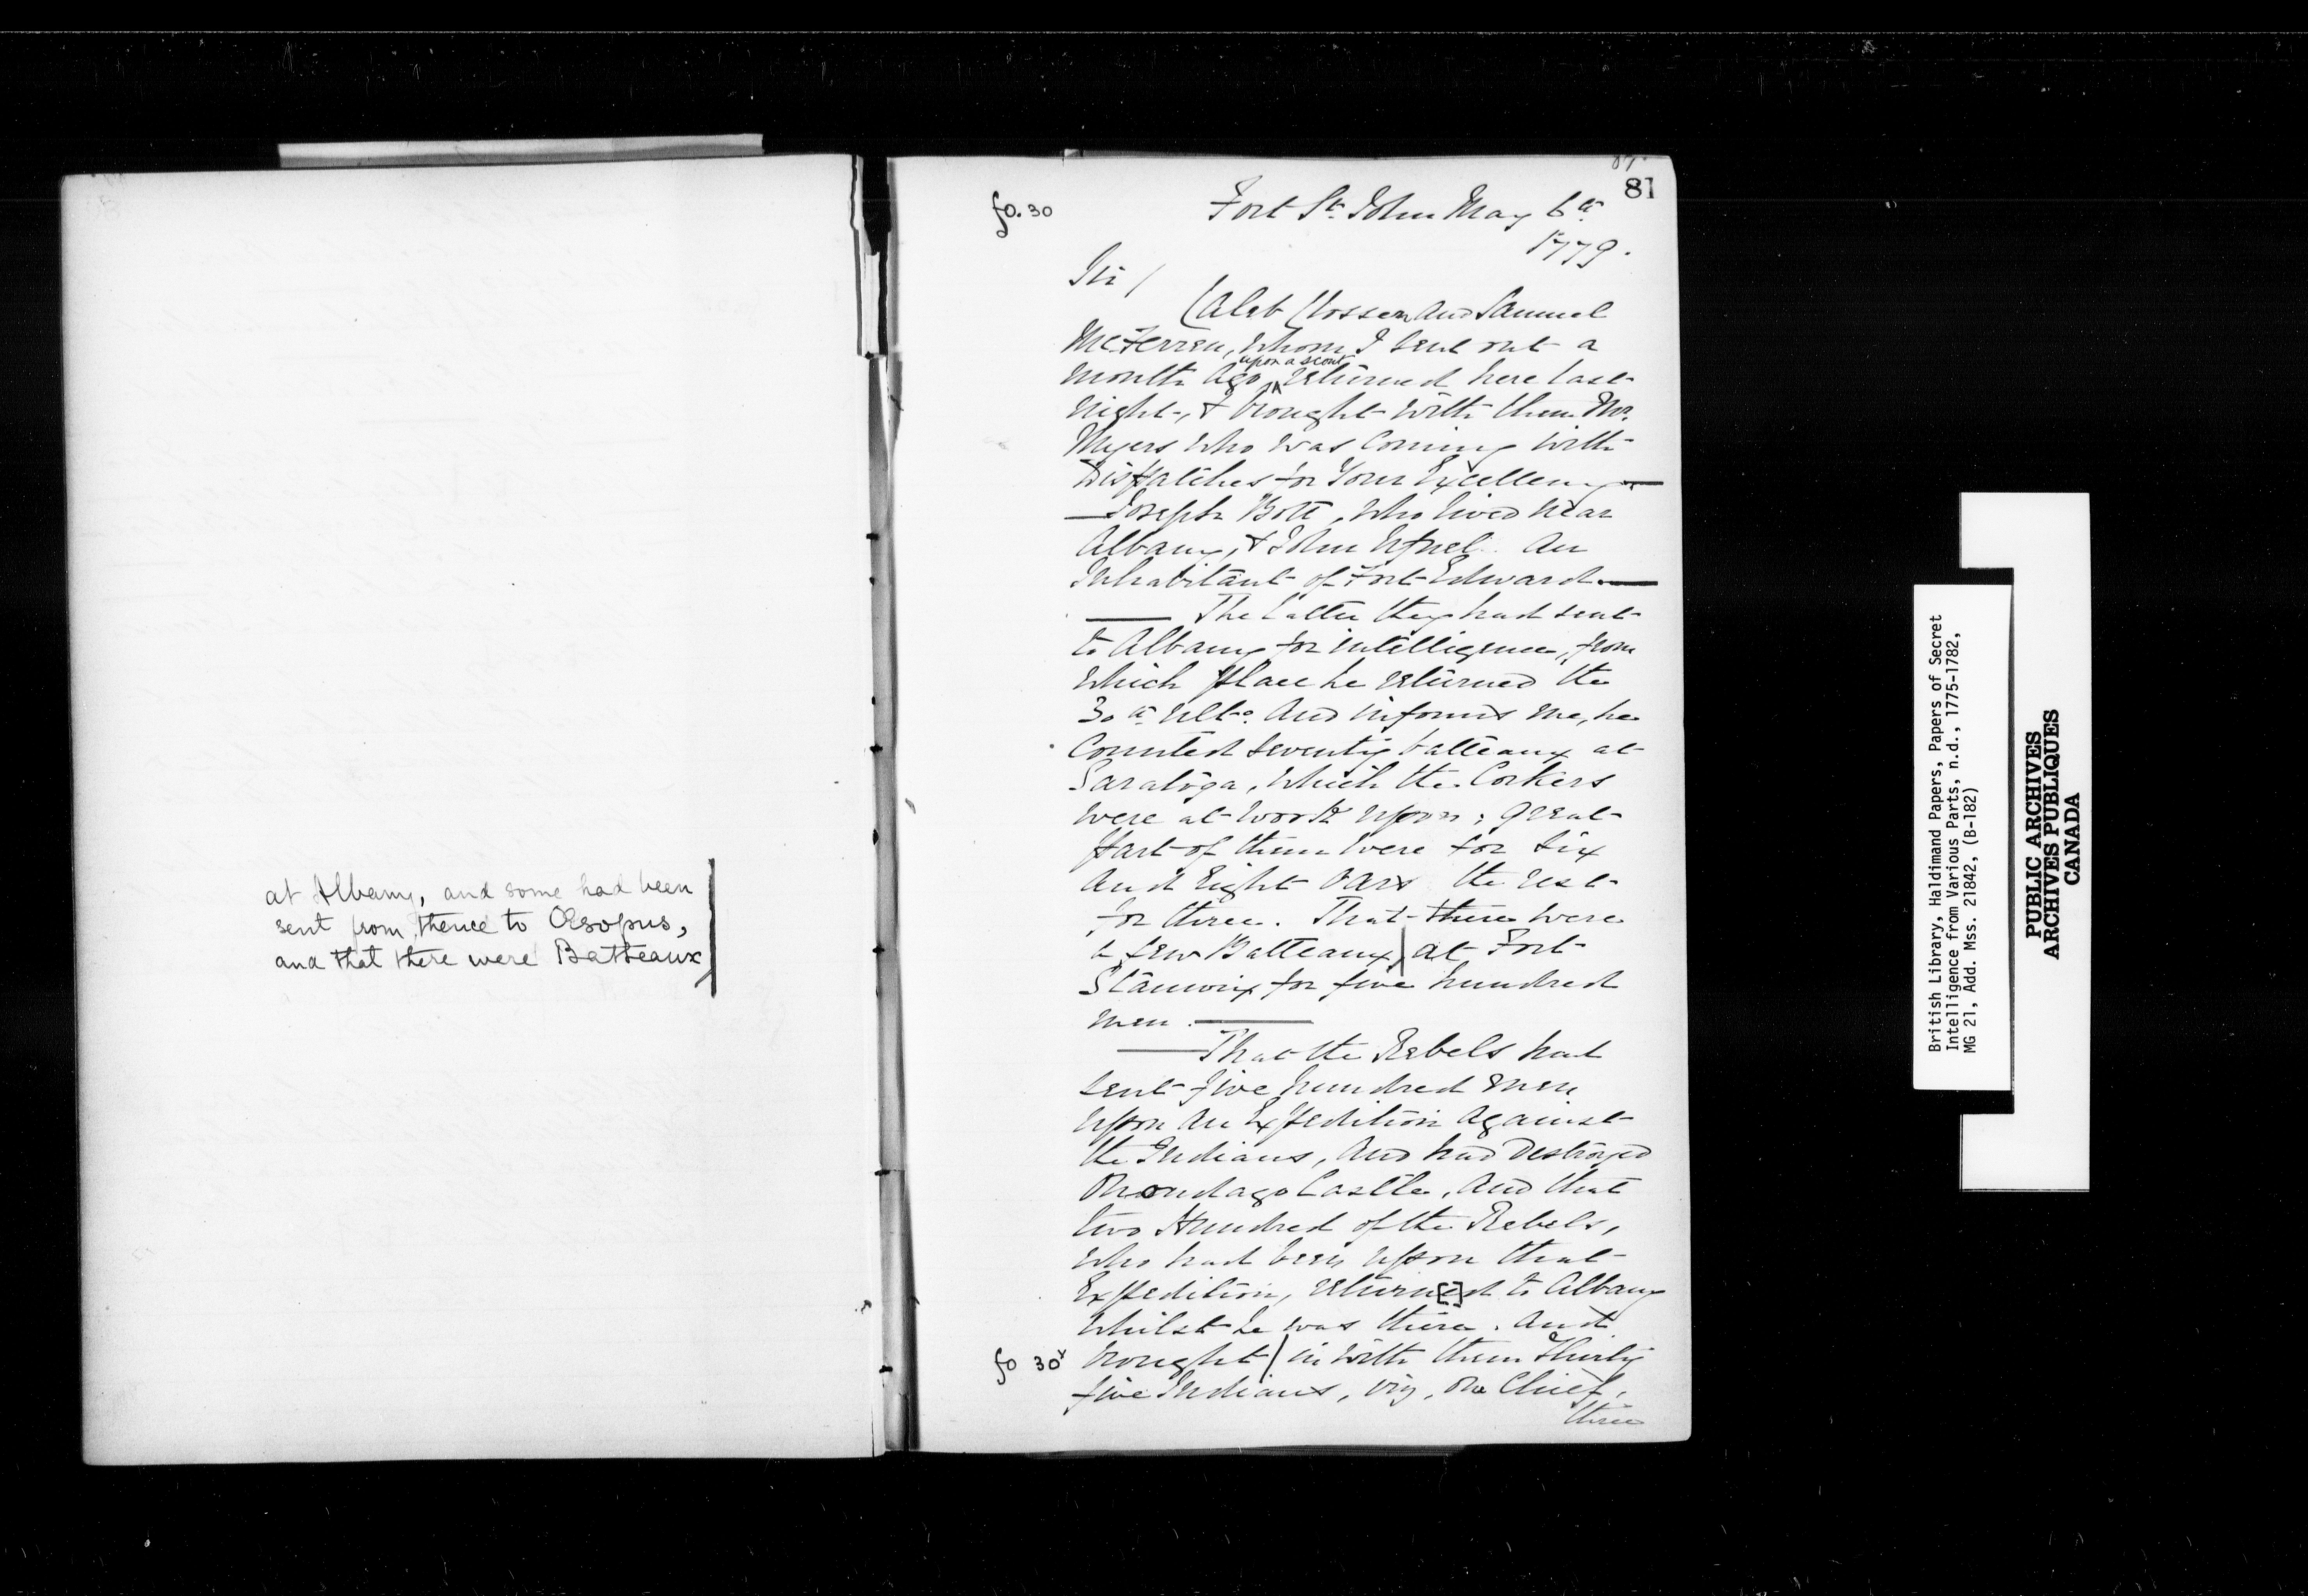 at Albany, and some had been
sent from thence to Œsopus,
and that there were Batteaux
81
fo. 30
Fort St. John May 6th
1779.
Sir /
Caleb Clossen and Samuel
McFerren, whom I sent out a
month ago upon a scout returned here last
night, & brought with them Mr.
Myers who was Coming with
Dispatches for Your Excellency
Joseph Bott, who lived near
Albany, & John an
Inhabitant of Fort Edward.
The latter they had sent
to Albany for intelligence, from
which place he returned the
30th Ulto. and informs me, he
Counted seventy batteaux at
Saratoga, which the Corkers
were at work upon; great
part of them were for six
and Eight Oars the rest
for three. That there were
a few Batteaux at Fort
Stanwix for five hundred
men.
That the Rebels had
sent five hundred men
upon an Expedition against
the Indians, and had Destroyed
Onondago Castle, and that
two Hundred of the Rebels,
who had been upon that
Expedition, return[e]d to Albany
whilst he was there. and
fo 30v brought in with them Thirty
five Indians, viz, One Chief,
three
British Library, Haldimand Papers, Papers of Secret
Intelligence from Various Parts, n.d., 1775-1782,
MG 21, Add. Mss. 21842, (B-182)
PUBLIC ARCHIVES
ARCHIVES PUBLIQUES
CANADA